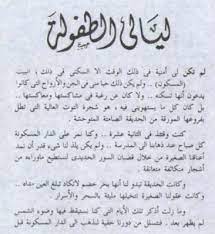 ليالى الطفولة
لم تكن لى أمنية فى ذلك الوقت الا السكنى فى ذلك البيت
(المسكون) .. ولم يكن ذلك حبا منى فى الجن والأرواح التى كانوا
يدعون أنها تسكنه .. ولا عن رغبة فى مشاكستها ومعاكستها ..
بل كان كل ما يستهوينى فيه، هو شجرة التوت العالية التى تطل
بفروعها المورقة من الحديقة الصامتة المتوحشة .
وكنت وقتئذ فى الثانية عشرة .. وكنت أمر على الدار المسكونة
كل صباح عند ذهابنا الى المدرسة .. ولم يكن يلذ لنا شىء قدر أن نمد
أعناقنا الصغيرة من خلال قضبان السور الحديدى لنستطلع ماوراءه من
أشجار متكاثفة متعانقة .
وكانت الحديقة تبدو لنا كأنها بحر خضم لاتكاد تبلغ العين مداه ..
وكانت عقولنا الصغيرة تتخيلها مليئة بالسحر والأسرار
وما زلت أذكر تلك الأيام التى كنا نستيقظ فيها وضوء الشمس
لم يظهر بعد .. فنتسلل من دورنا خفية لنذهب الى الدار المسكونة قبل